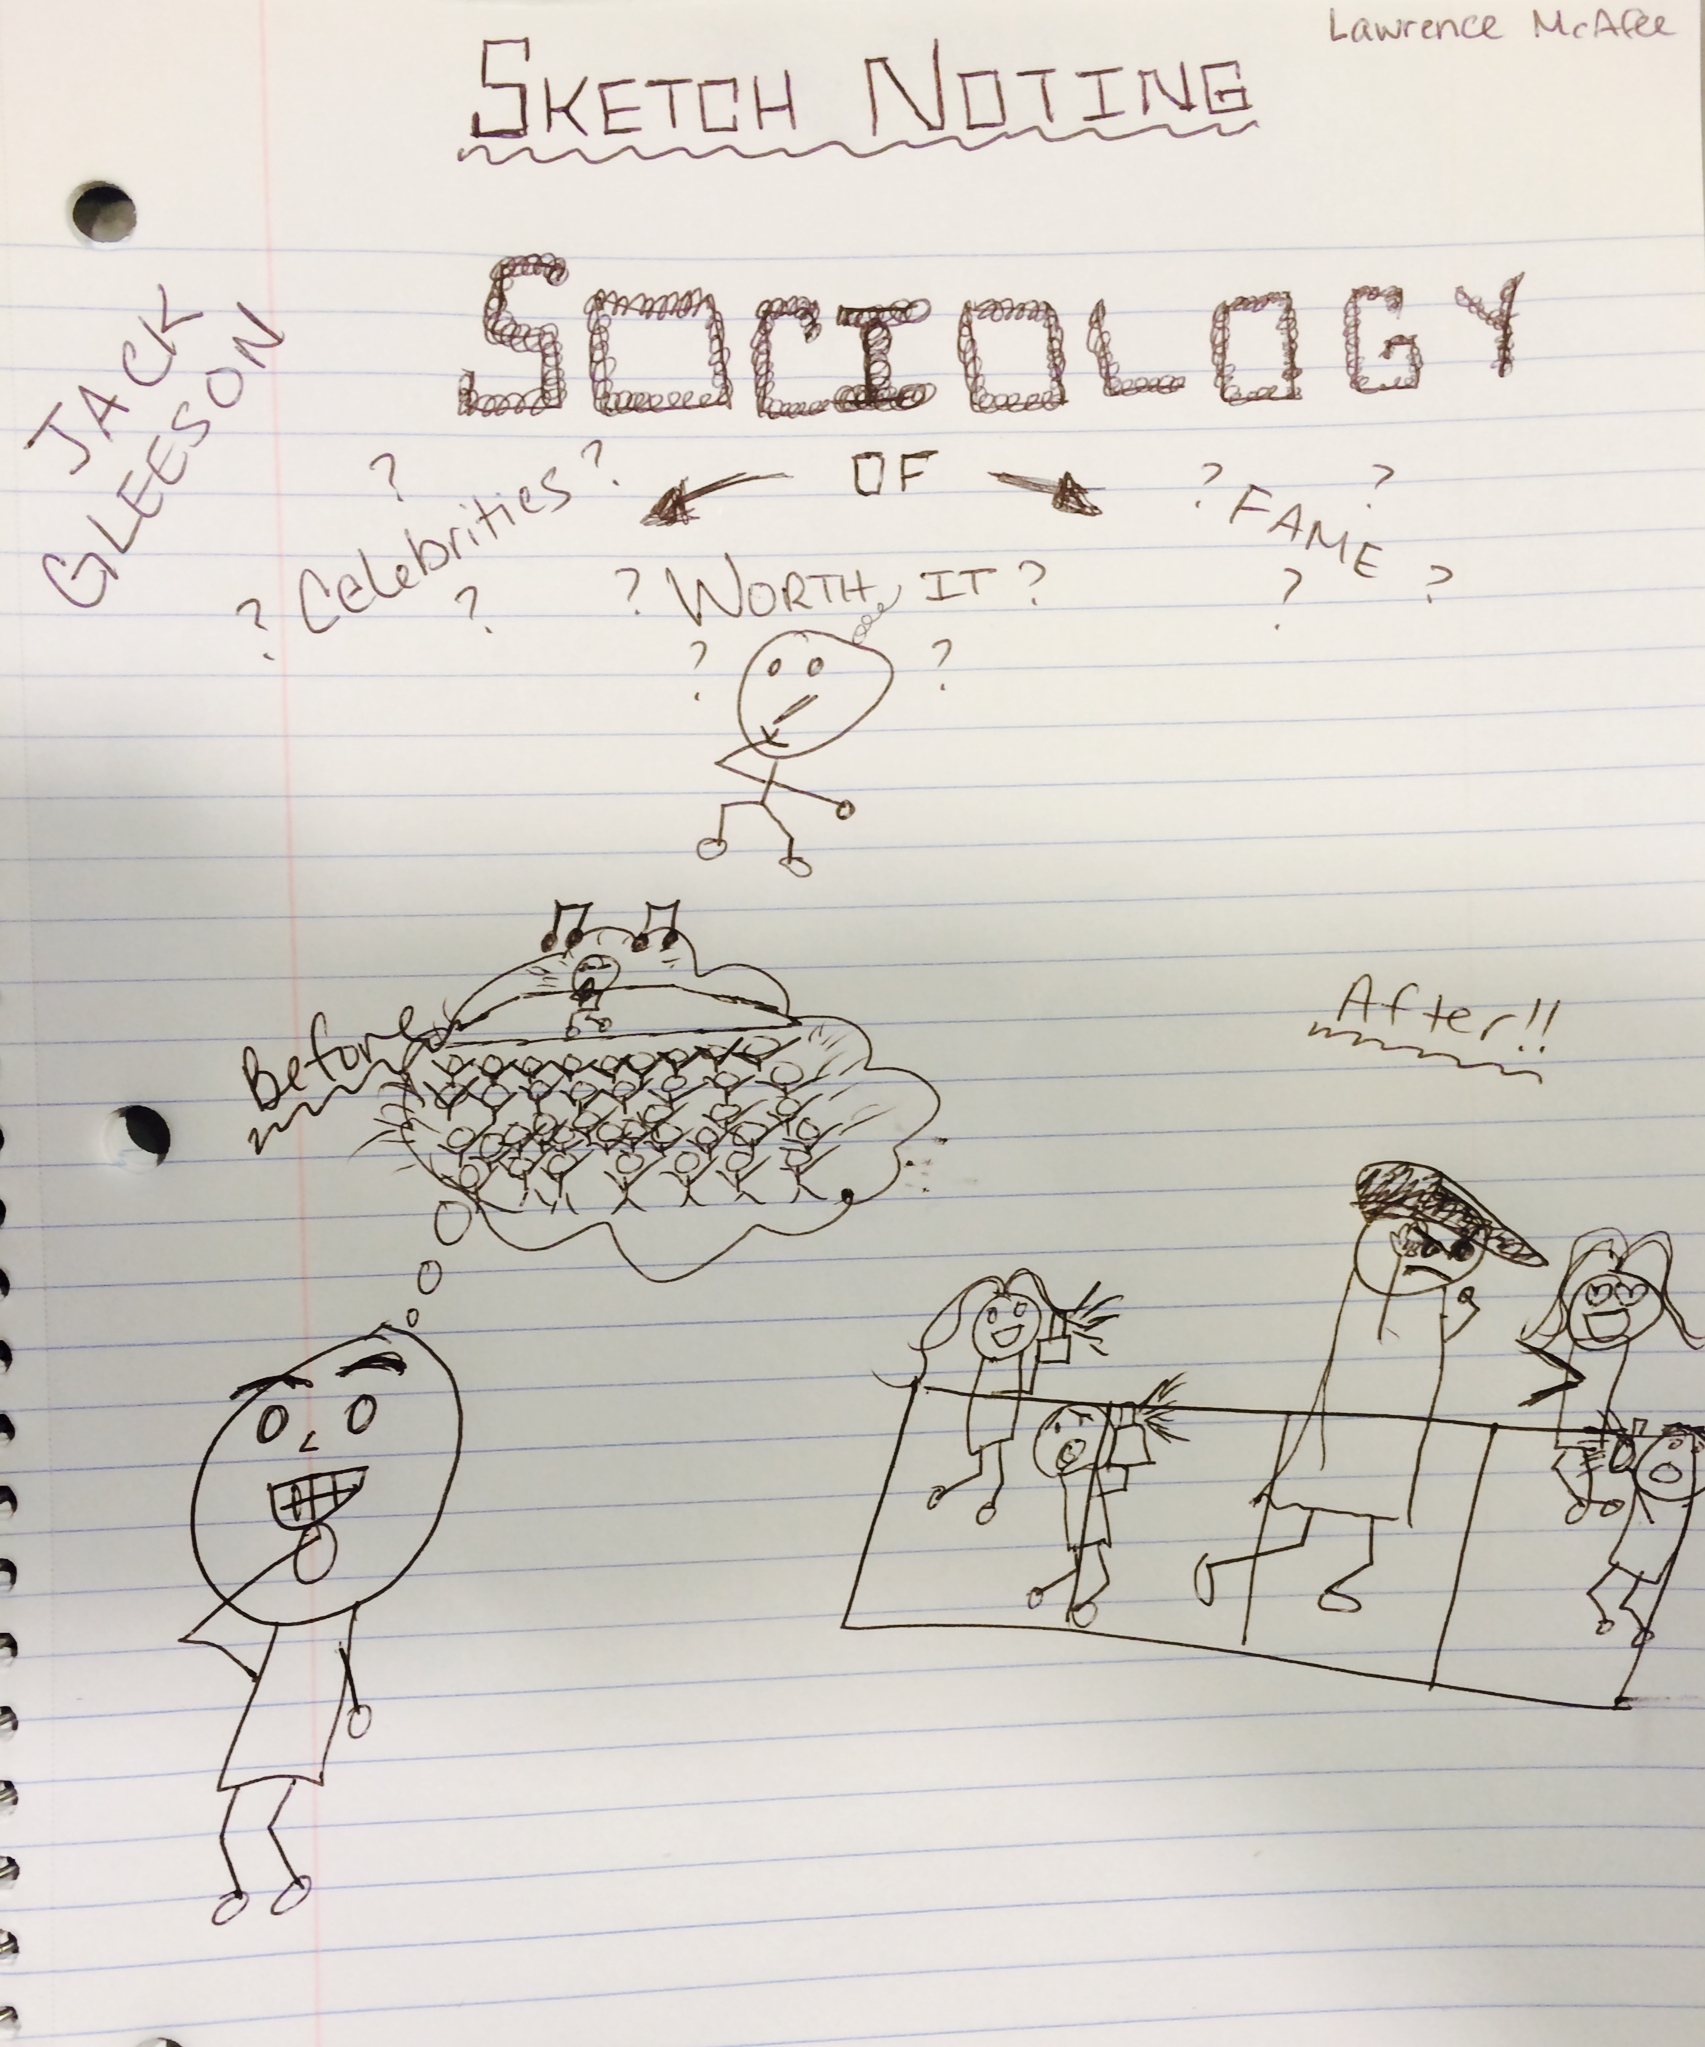 Lawrence McAfee
SKETCH NOTING
JACK
GLEESON
SOCIOLOGY
OF
? Celebrities ? ? ?
? FAME ? ? ?
? WORTH IT ?
? ?
Before
After!!